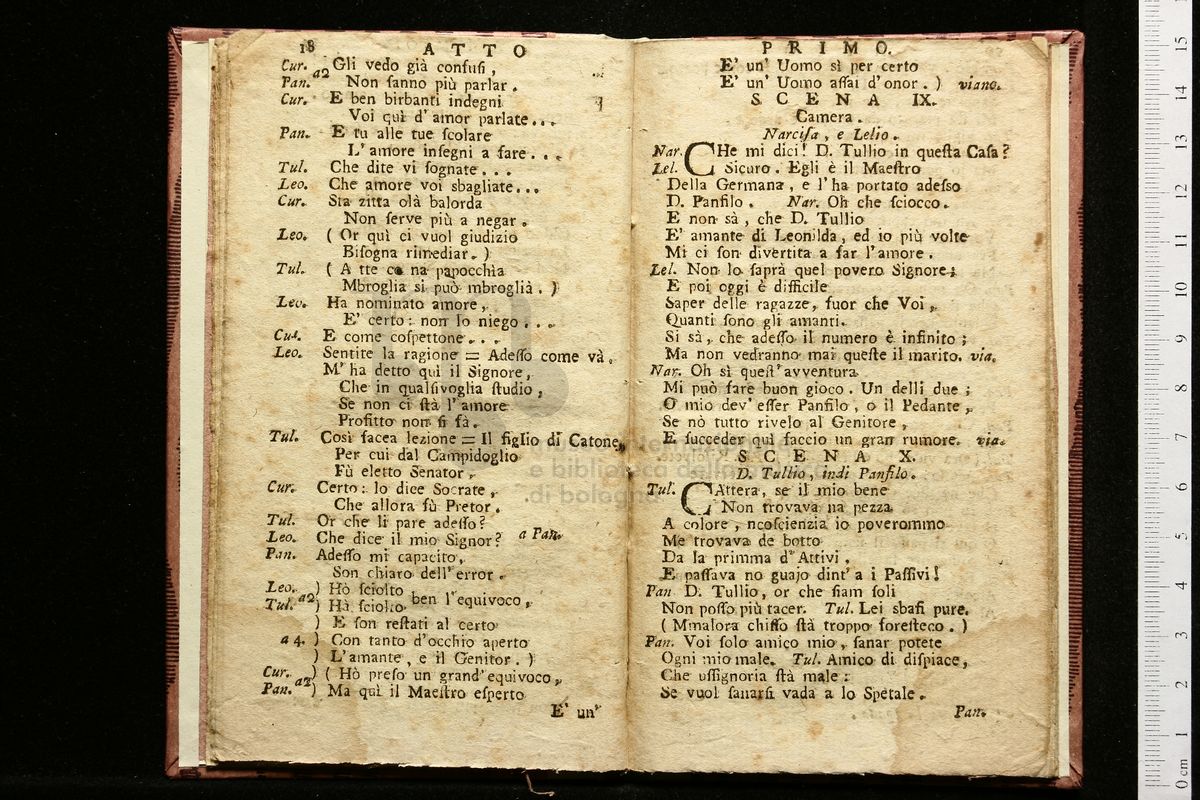 18 ATTO
Cur. a2 Gli vedo già confuſi,
Pan. Non ſanno più parlar.
Cur. E ben birbanti indegni
Voi quì d'amor parlate...
Pan. E tu alle tue ſcolare
L'amore inſegni a fare...
Tul. Che dite vi ſognate...
Leo. Che amore voi sbagliate...
Cur. Sta zitta olà balorda
Non ſerve più a negar.
Leo. ( Or quì ci vuol giudizio
Biſogna rimediar. )
Tul. ( A tte ca na papocchia
Mbroglia si può mbroglià. )
Leo. Ha nominato amore,
E' certo: non lo niego...
Cur. E come coſpettone...
Leo. Sentite la ragione = Adeſſo come và.
M'ha detto quì il Signore,
Che in qualſivoglia ſtudio,
Se non ci ſtà l'amore
Profitto non ſi fà.
Tul. Così facea lezione = Il figlio di Catone,
Per cui dal Campidoglio
Fù eletto Senator,
Cur. Certo: lo dice Socrate,
Che allora fù Pretor.
Tul. Or che li pare adeſſo?
Leo. Che dice il mio Signor? a Pan.
Pan. Adeſſo mi capacito,
Son chiaro dell'error.
Leo. a2 ) Hò ſciolto ben l'equivoco,
Tul. ) Hà ſciolto
) E ſon reſtati al certo
a 4. ) Con tanto d'occhio aperto
) L'amante, e il Genitor. )
Cur. a2 ) ( Hò preſo un grand'equivoco,
Pan. ) Ma quì il Maeſtro eſperto
E' un'
PRIMO.
E' un' Uomo sì per certo
E' un' Uomo aſſai d'onor. ) viano.
SCENA IX.
Camera.
Narciſa, e Lelio.
Nar. CHe mi dici! D. Tullio in queſta Caſa?
Lel. Sicuro. Egli è il Maeſtro
Della Germana, e l'ha portato adeſſo
D. Panfilo. Nar. Oh che ſciocco.
E non sà, che D. Tullio
E' amante di Leonilda, ed io più volte
Mi ci ſon divertita a far l'amore.
Lel. Non lo ſaprà quel povero Signore;
E poi oggi è difficile
Saper delle ragazze, fuor che Voi,
Quanti ſono gli amanti.
Si sà, che adeſſo il numero è infinito;
Ma non vedranno mai queſte il marito. via.
Nar. Oh sì queſt'avventura
Mi può fare buon gioco. Un delli due;
O mio dev'eſſer Panfilo, o il Pedante,
Se nò tutto rivelo al Genitore,
E ſucceder quì faccio un gran rumore. via.
SCENA X.
D. Tullio, indi Panfilo.
Tul. CAttera, se il mio bene
Non trovava na pezza
A colore, ncoſcienzia io poverommo
Me trovava de botto
Da la primma d'Attivi,
E paſſava no guajo dint'a i Paſſivi!
Pan D. Tullio, or che ſiam ſoli
Non poſſo più tacer. Tul. Lei sbafi pure.
( Mmalora chiſſo ſtà troppo foreſteco. )
Pan. Voi ſolo amico mio, ſanar potete
Ogni mio male. Tul. Amico di diſpiace,
Che uſſignoria ſtà male:
Se vuol ſanarſi vada a lo Spetale.
Pan.